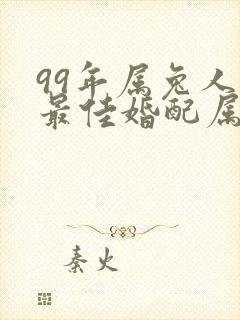 99年属兔人
最佳婚配属
秦火